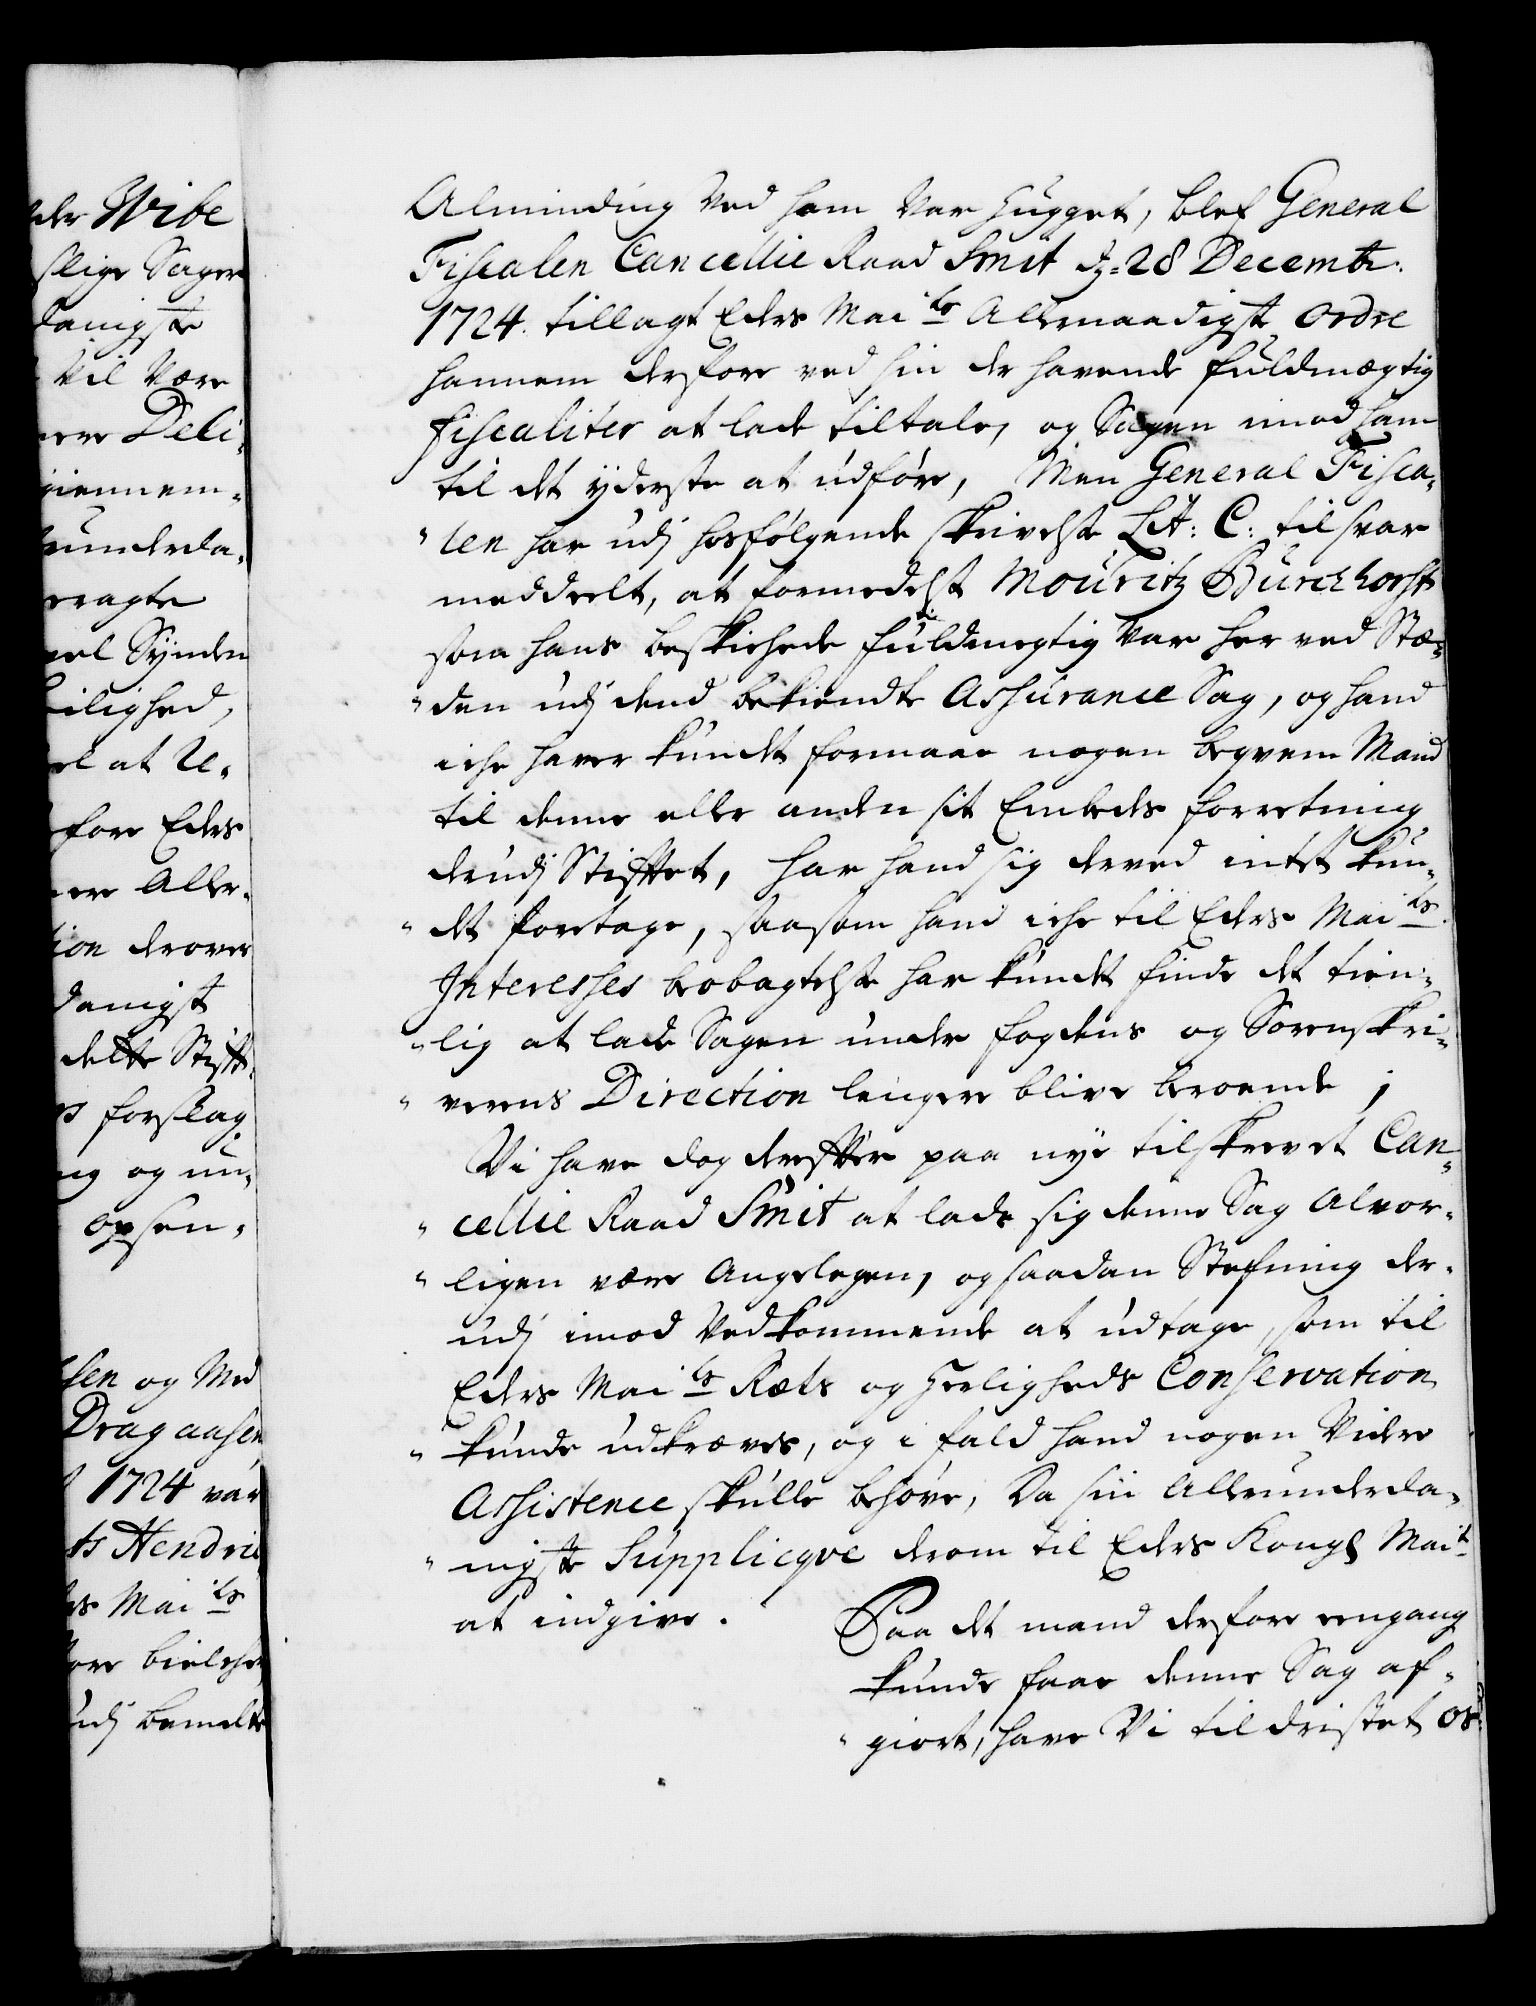 der Wibe
slige Sager
danigste
Vil Være
Deli-
giennem-
underda-
eragte
vel Synden
ilighed,
el at U-
fore Eders
Aller-
tion derover
danigst
dette Stift-
forslag
ng og un-
opsen-
sen og Med
Dragaasen
1724 var
ts Hendric
Mai ts
bielcher
udj bemelte
Alminding Ved ham Var hugget, blef General
Fiscalen Cancellie Raad Smit d: 28 Decembr:
1724. tillagt Eders Mai ts Allernaadigste Ordre
hannem derfore ved sin der havende fuldmægtig
fiscaliter at lade tiltale, og Sagen imod ham
til det yderste at udføre, Men General Fisca-
"len har udj hosfølgende skrivelse Lit: C: til svar
meddeelt, at formedelst Mouritz Burchhorst
som hans beskichede fuldmegtig Var her ved Stæ-
"den udj dend bekiendte Assurance Sag, og hand
iche haver kundt formaae nogen beqvem Mand
til denne eller anden sit Embeds forretning
derudj Stifftet, har hand sig derved intet kun-
"det foretage, saasom hand iche til Eders Mai ts
Interesses beobagtelse har kundet finde det tien-
"lig at lade Sagen under fogdens og Sorenskri-
"verens Direction lenger blive beroende ;
Vi have dog derefter paa nye tilskrevet Can-
"cellie Raad Smit at lade sig denne Sag Alvor-
"ligen være Angelegen, og saadan Stefning der-
udj imod Vedkommende at udtage, som til
Eders Mai ts Ræts og Herligheds Conservation
"kunde udkræves, og i fald hand nogen Videre
Assistence skulle behøve, Da sin Allerunderda-
"nigste Supplicqve derom til Eders Kongl Mai t
at indgive.
Paa det mand derfore eengang
kunde faae denne Sag af-
"giort, have Vi tildristet os